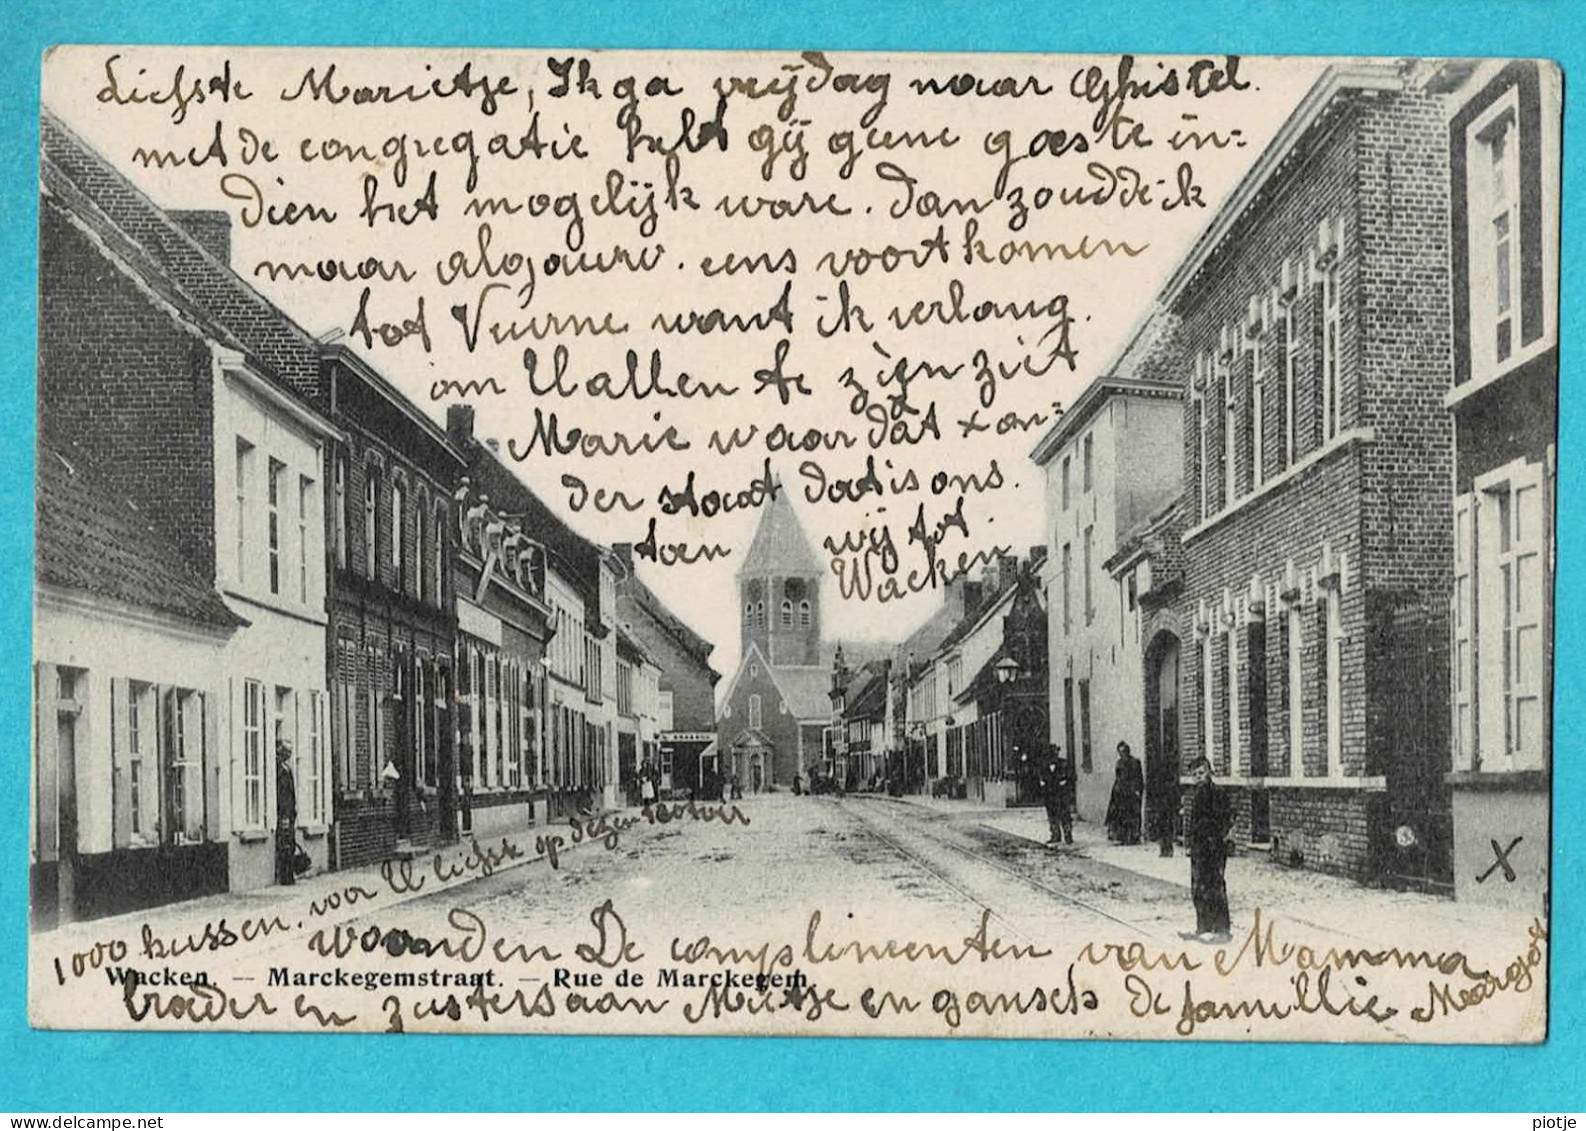 Liefste Marietje, Ik ga vrijdag naar Ghistel.
met de congregatie hebt gij geene goeste in=
dien het mogelijk ware. dan zoudde ik
maar algauw. eens voort komen
tot Vuurne want ik verlang.
om U allen te zien ziet
Marie waar dat x on=
der staat dat is ons.
toen wij tot
Wacken.
woonden De complimenten van Mamma
broder en zusters aan Mietje en gansch de famillie Margot
1000 kussen. voor U liefste op dezen
Wacken. — Marckegemstraat. — Rue de Marckegem
X
delcampe.net
piotje